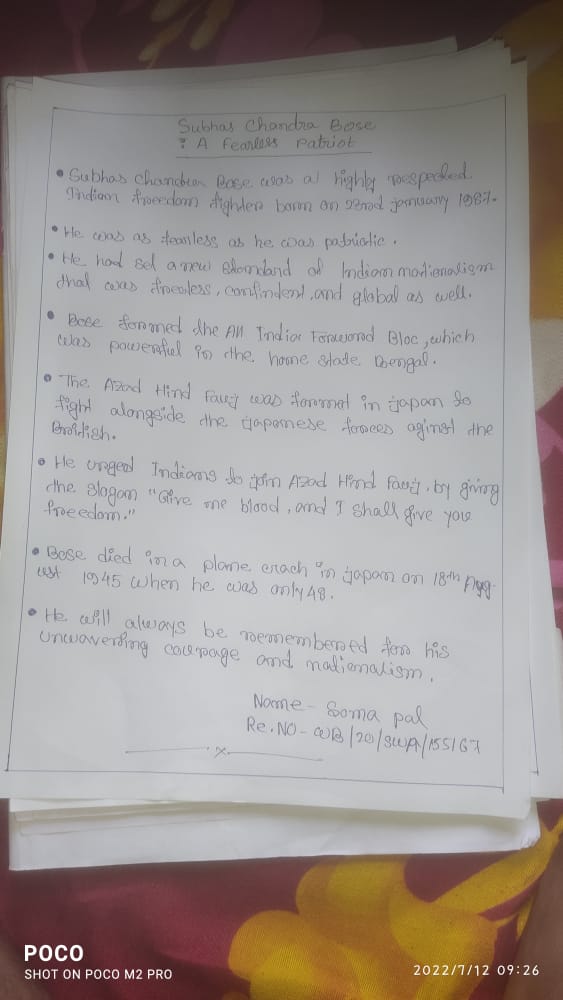 Subhas Chandra Bose
: A Fearless Patriot
• Subhas Chandra Bose was a highly respected
Indian freedom fighter born on 23rd january 1987.
• He was as fearless as he was patriotic.
• He had set a new standard of Indian nationalism
that was fearless, confindent, and global as well.
• Bose formed the All India Forword Bloc, which
was powerful in the home state Bengal.
• The Azad Hind Fauj was formet in japan to
fight alongside the japanese forces aginst the
British.
• He urged Indians to join Azad Hind Fauj, by giving
the slogan "Give me blood, and I shall give you
freedom."
• Bose died in a plane crach in japan on 18th Aug-
ust 1945 when he was only 48.
• He will always be remembered for his
unwavering courage and nationalism.
Name - Soma pal
Re.NO - WB/20/SWA/155167
x
POCO
SHOT ON POCO M2 PRO
2022/7/12 09:26